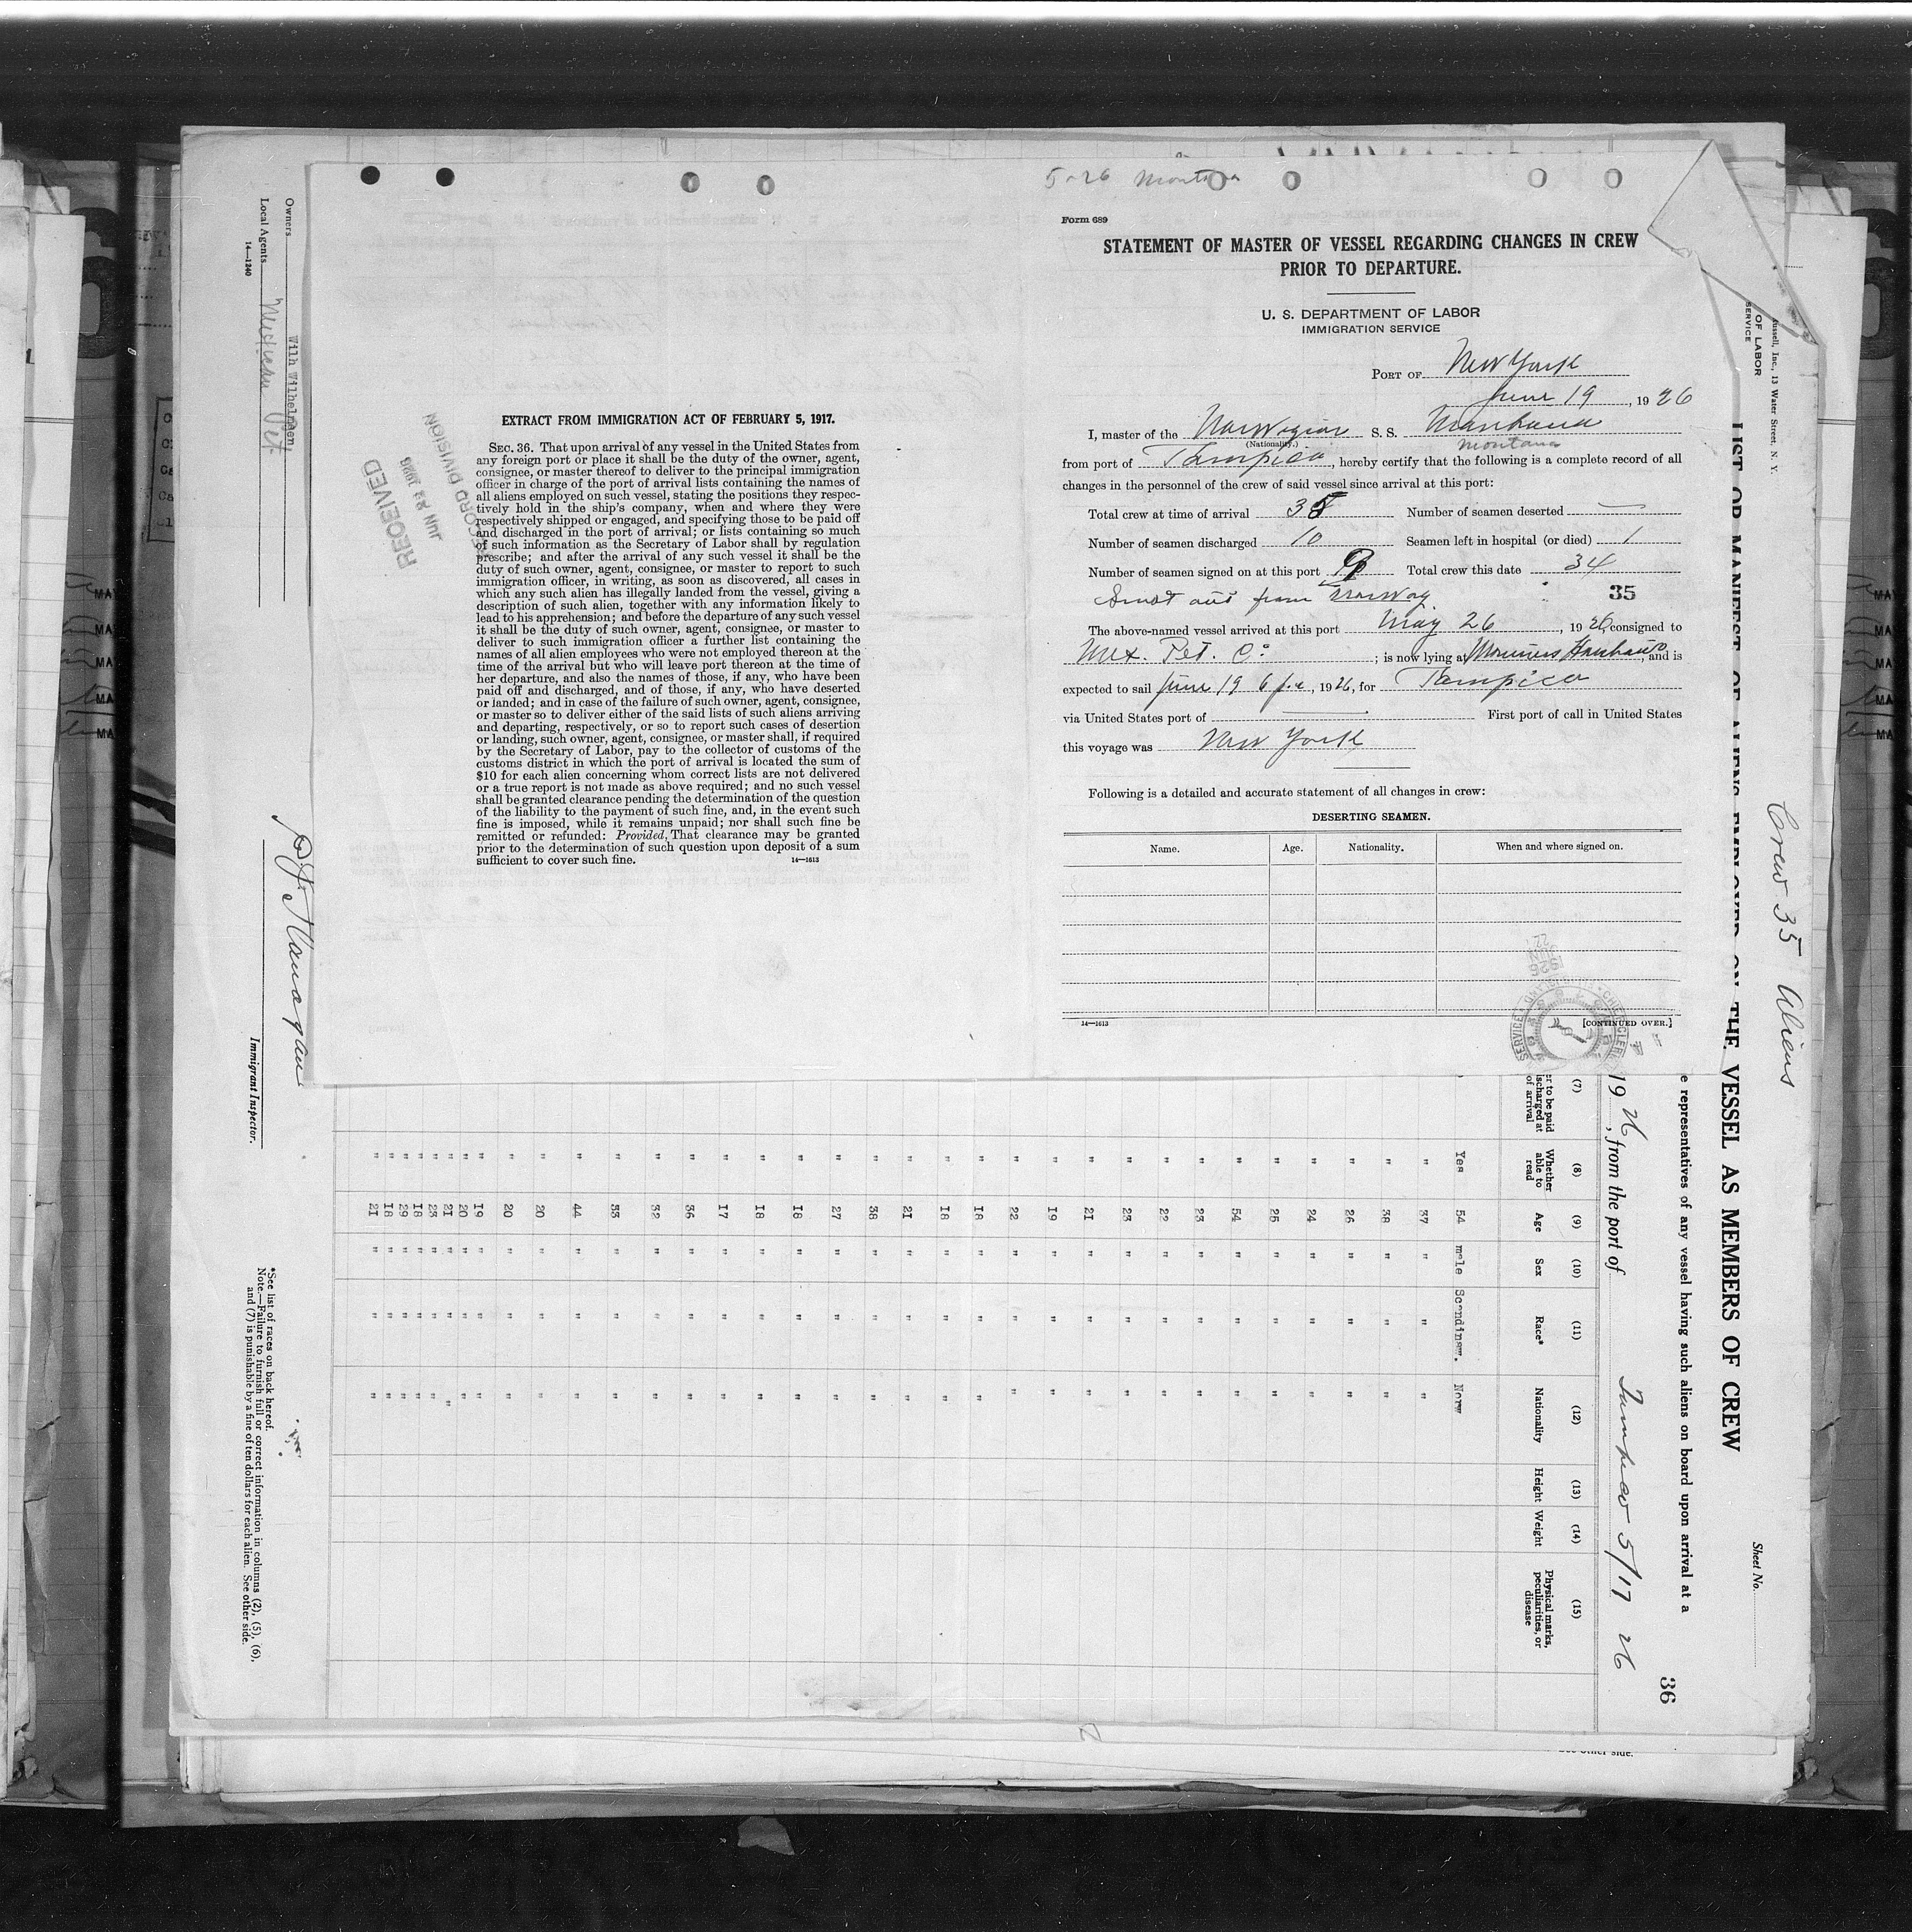 5-26 Montana
Form 689
STATEMENT OF MASTER OF VESSEL REGARDING CHANGES IN CREW
PRIOR TO DEPARTURE.
U. S. DEPARTMENT OF LABOR
IMMIGRATION SERVICE
PORT OF New York
June 19, 1926
I, master of the Norwegian S. S.
(Nationality.)
Montana
from port of Tampico, hereby certify that the following is a complete record of all
changes in the personnel of the crew of said vessel since arrival at this port:
Total crew at time of arrival 35 Number of seamen deserted —
Number of seamen discharged 10 Seamen left in hospital (or died) 1
Number of seamen signed on at this port Total crew this date 34
out from Norway 35
The above-named vessel arrived at this port May 26, 1926, consigned to
Mex. Pet. Co; is now lying at, and is
expected to sail June 19 6 p.m, 1926, for Tampico
via United States port of — First port of call in United States
this voyage was New York
Following is a detailed and accurate statement of all changes in crew:
DESERTING SEAMEN.
Name. Age. Nationality. When and where signed on.
14—1613 [CONTINUED OVER.]
EXTRACT FROM IMMIGRATION ACT OF FEBRUARY 5, 1917.
SEC. 36. That upon arrival of any vessel in the United States from
any foreign port or place it shall be the duty of the owner, agent,
consignee, or master thereof to deliver to the principal immigration
officer in charge of the port of arrival lists containing the names of
all aliens employed on such vessel, stating the positions they respec-
tively hold in the ship's company, when and where they were
respectively shipped or engaged, and specifying those to be paid off
and discharged in the port of arrival; or lists containing so much
of such information as the Secretary of Labor shall by regulation
prescribe; and after the arrival of any such vessel it shall be the
duty of such owner, agent, consignee, or master to report to such
immigration officer, in writing, as soon as discovered, all cases in
which any such alien has illegally landed from the vessel, giving a
description of such alien, together with any information likely to
lead to his apprehension; and before the departure of any such vessel
it shall be the duty of such owner, agent, consignee, or master to
deliver to such immigration officer a further list containing the
names of all alien employees who were not employed thereon at the
time of the arrival but who will leave port thereon at the time of
her departure, and also the names of those, if any, who have been
paid off and discharged, and of those, if any, who have deserted
or landed; and in case of the failure of such owner, agent, consignee,
or master so to deliver either of the said lists of such aliens arriving
and departing, respectively, or so to report such cases of desertion
or landing, such owner, agent, consignee, or master shall, if required
by the Secretary of Labor, pay to the collector of customs of the
customs district in which the port of arrival is located the sum of
$10 for each alien concerning whom correct lists are not delivered
or a true report is not made as above required; and no such vessel
shall be granted clearance pending the determination of the question
of the liability to the payment of such fine, and, in the event such
fine is imposed, while it remains unpaid; nor shall such fine be
remitted or refunded: Provided, That clearance may be granted
prior to the determination of such question upon deposit of a sum
sufficient to cover such fine. 14—1613
RECEIVED
JUN 22 1926
RECORD DIVISION
Crew 35 Aliens
Sheet No.
ussell, Inc., 13 Water Street, N. Y.
OF LABOR
SERVICE
LIST OR MANIFEST OF ALIENS EMPLOYED ON THE VESSEL AS MEMBERS OF CREW
e representatives of any vessel having such aliens on board upon arrival at a
36
1926, from the port of Tampico 5/17 26
(7) (8) (9) (10) (11) (12) (13) (14) (15)
er to be paid
ischarged at
of arrival
Whether
able to
read
Age
Sex
Race*
Nationality
Height
Weight
Physical marks,
peculiarities, or
disease
Yes 54 male Scandinav. Norw
" 37 " " "
" 38 " " "
" 26 " " "
" 24 " " "
" 25 " " "
" 54 " " "
" 23 " " "
" 22 " " "
" 23 " " "
" 21 " " "
" 19 " " "
" 22 " " "
" 18 " " "
" 18 " " "
" 21 " " "
" 38 " " "
" 27 " " "
" 18 " " "
" 18 " " "
" 17 " " "
" 36 " " "
" 32 " " "
" 33 " " "
" 44 " " "
" 20 " " "
" 20 " " "
" 19 " " "
" 20 " " "
" 21 " " "
" 23 " " "
" 18 " " "
" 29 " " "
" 18 " " "
" 21 " " "
Owners Wilh Wilhelmsen
Local Agents Mexican Pet.
14—1240
Immigrant Inspector.
*See list of races on back hereof.
Note.—Failure to furnish full or correct information in columns (2), (5), (6),
and (7) is punishable by a fine of ten dollars for each alien. See other side.